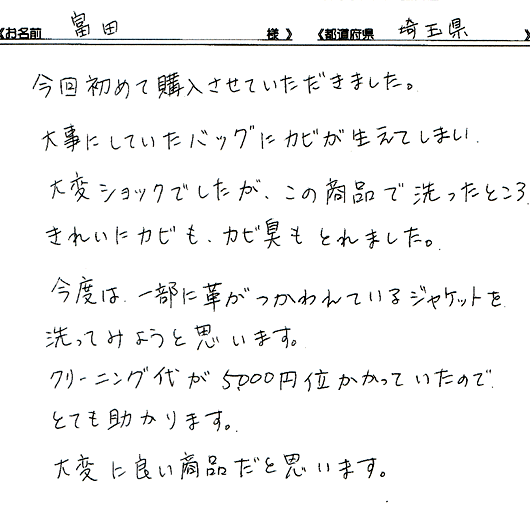 《お名前 富田 様 》 《都道府県 埼玉県 》
今回初めて購入させていただきました。
大事にしていたバッグにカビが生えてしまい、
大変ショックでしたが、この商品で洗ったところ
きれいにカビも、カビ臭もとれました。
今度は、一部に革がつかわれているジャケットを
洗ってみようと思います。
クリーニング代が5,000円位かかっていたので
とても助かります。
大変に良い商品だと思います。